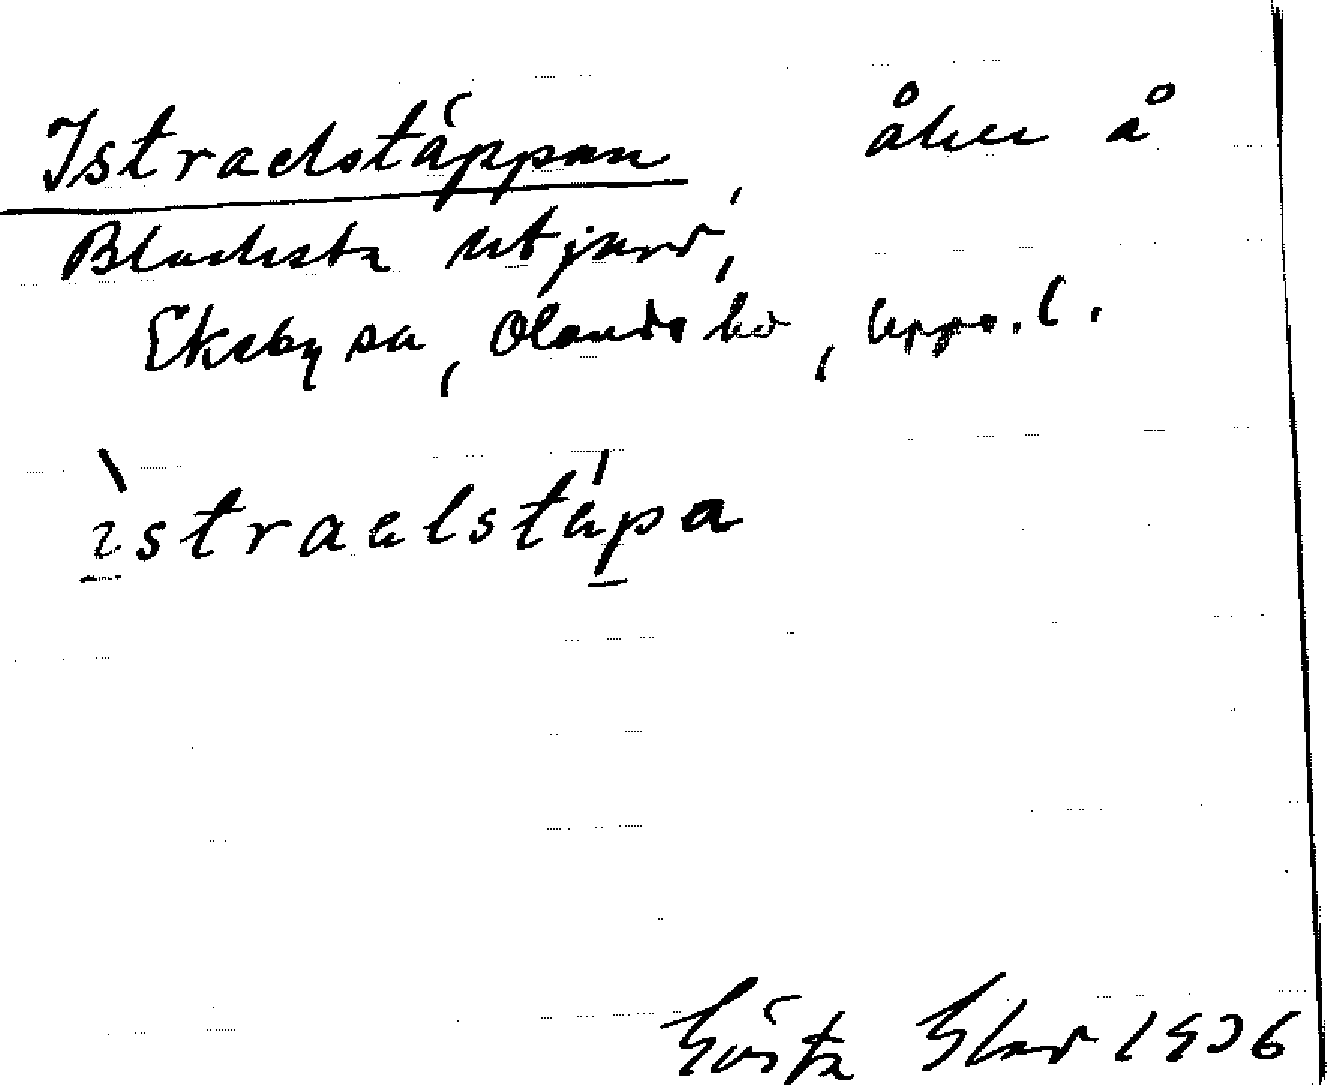 Istraelstäppan, åker å
Blacksta utjord,
Ekeby sn, Olands hd, Upps. l.
istraelstäpa
Gösta Elov 1936